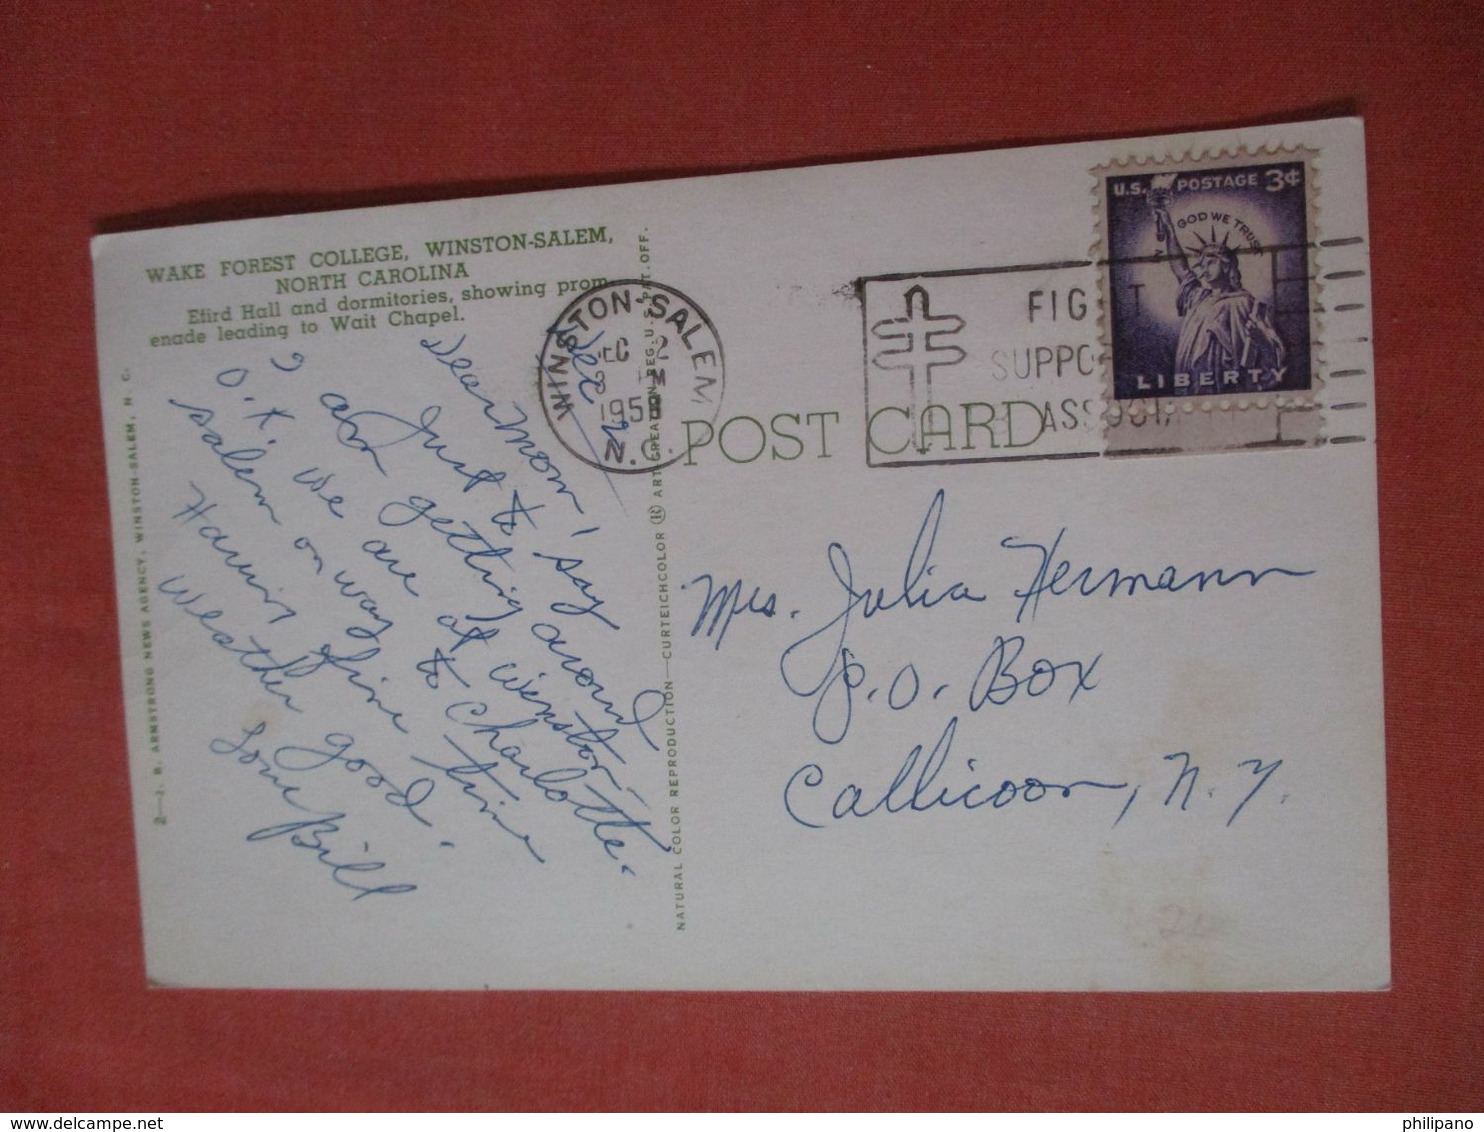 WAKE FOREST COLLEGE, WINSTON-SALEM,
NORTH CAROLINA
Efird Hall and dormitories, showing prom-
enade leading to Wait Chapel.
Dec 2
Dear Mom,
Just to say
I am getting around
O.K. We are at Winston-
Salem on way to Charlotte.
Having fine time
Weather good.
Love Bill
2—J. B. ARMSTRONG NEWS AGENCY, WINSTON-SALEM, N. C.
NATURAL COLOR REPRODUCTION—CURTEICHCOLOR ® ART CREATION REG. U.S. PAT. OFF.
WINSTON-SALEM
DEC 2
PM
1958
N.C.
POST CARD
FIG T
SUPPO
ASSOCI
U.S. POSTAGE 3¢
IN GOD WE TRUST
LIBERTY
Mrs. Julia Hermann
P.O. Box
Callicoon, N.Y.
philipano